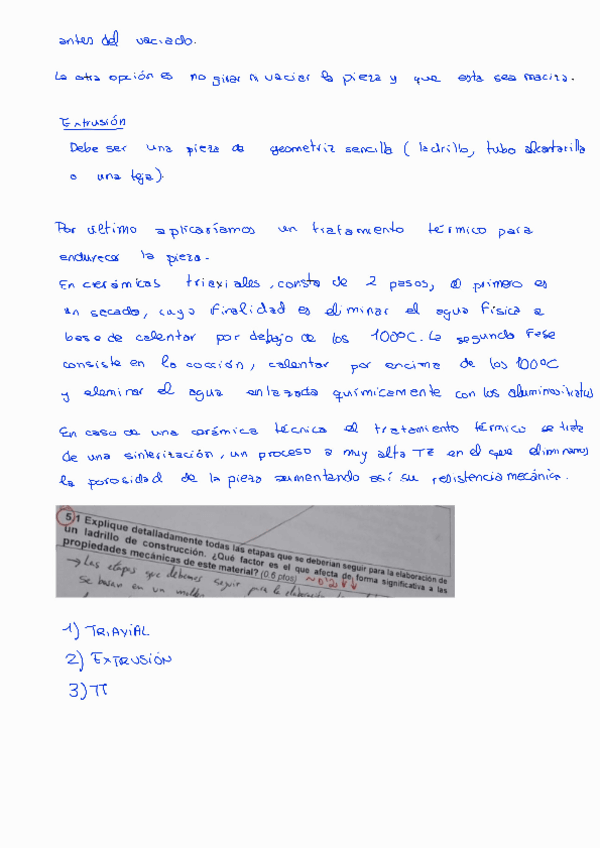 antes del vaciado.
La otra opción es no girar ni vaciar la pieza y que esta sea maciza.
Extrusión
Debe ser una pieza de geometriz sencilla ( ladrillo, tubo alcantarilla
o una teja).
Por ultimo aplicaríamos un tratamiento térmico para
endurecer la pieza.
En cerámicas triaxiales, consta de 2 pasos, el primero es
un secado, cuya finalidad es eliminar el agua física a
base de calentar por debajo de los 100ºC. La segunda fase
consiste en la cocción, calentar por encima de los 100ºC
y eleminar el agua enlazada químicamente con los aluminosilicatos
En caso de una cerámica técnica el tratamiento térmico se trata
de una sinterización, un proceso a muy alta Tª en el que eliminamos
la porosidad de la pieza aumentando así su resistencia mecánica.
5.1 Explique detalladamente todas las etapas que se deberían seguir para la elaboración de
un ladrillo de construcción. ¿Qué factor es el que afecta de forma significativa a las
propiedades mecánicas de este material? (0.6 ptos) ~0,2
→ Las etapas que debemos seguir para la elaboración
se basan en un
1) TRIAXIAL
2) EXTRUSIÓN
3) TT